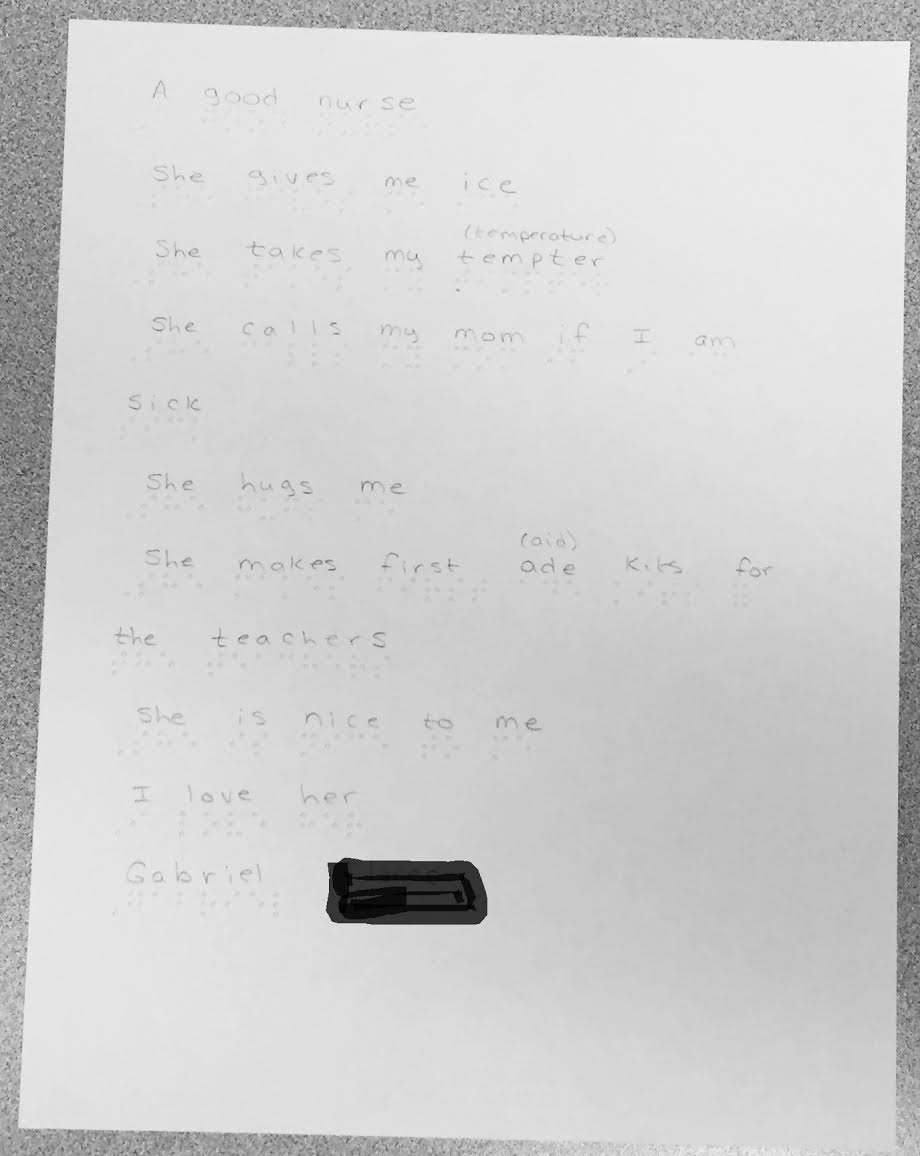 A good nurse
She gives me ice
(temperature)
She takes my tempter
She calls my mom if I am
sick
She hugs me
(aid)
She makes first ade kits for
the teachers
She is nice to me
I love her
Gabriel